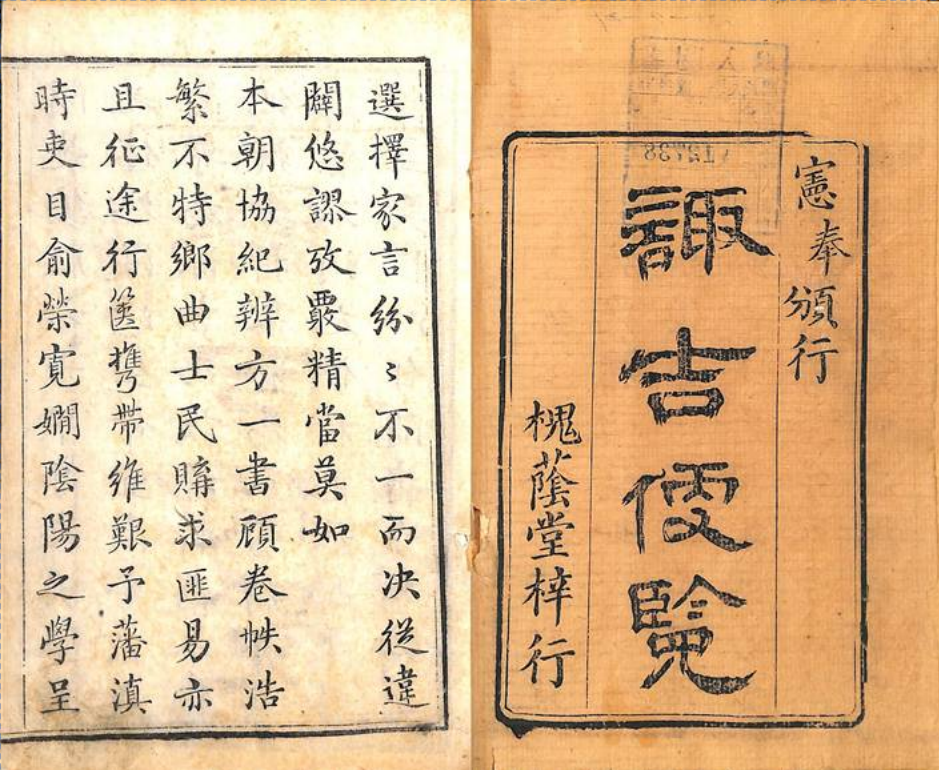 憲奉頒行
諏吉便覽
槐蔭堂梓行
選擇家言紛〻不一而决從違
闢悠謬攷覈精當莫如
本朝協紀辨方一書顧卷帙浩
繁不特鄉曲士民購求匪易亦
且征途行篋攜帶維艱予藩滇
時吏目俞榮寬嫺陰陽之學呈